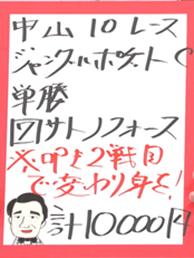 中山10レース
ジャングルポケットC
単勝
四サトノフォース
※叩き2戦目
で変わり身を!
計10000円